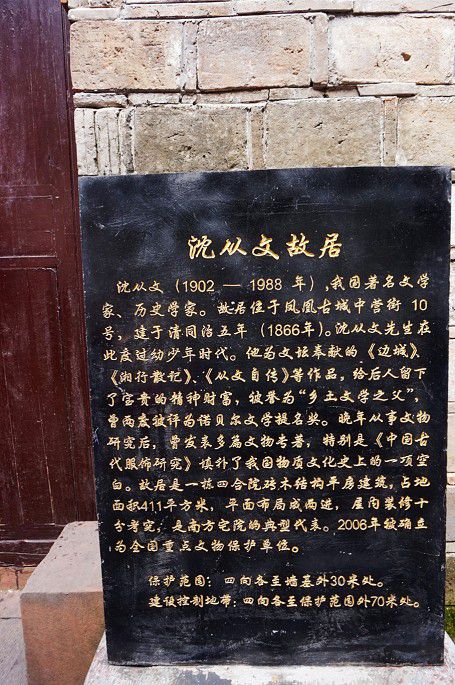 沈从文故居
沈从文（1902 — 1988 年），我国著名文学
家、历史学家。故居位于凤凰古城中营街 10
号，建于清同治五年（1866年）。沈从文先生在
此度过幼少年时代。他为文坛奉献的《边城》、
《湘行散记》、《从文自传》等作品，给后人留下
了宝贵的精神财富，被誉为“乡土文学之父”，
曾两度被评为诺贝尔文学提名奖。晚年从事文物
研究后，曾发表多篇文物专著，特别是《中国古
代服饰研究》填补了我国物质文化史上的一项空
白。故居是一栋四合院砖木结构平房建筑，占地
面积411平方米，平面布局成两进，屋内装修十
分考究，是南方宅院的典型代表。2006年被确立
为全国重点文物保护单位。
保护范围：四向各至墙基外30米处。
建设控制地带：四向各至保护范围外70米处。